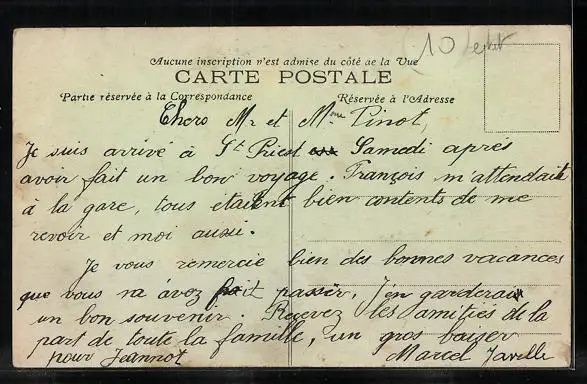 (10 sept
Aucune inscription n'est admise du côté de la Vue
CARTE POSTALE
Partie réservée à la Correspondance
Réservée à l'Adresse
Chers Mr et Mme Pinot,
Je suis arrivé à St Priest Samedi après
avoir fait un bon voyage. François m'attendait
à la gare, tous étaient bien contents de me
revoir et moi aussi.
Je vous remercie bien des bonnes vacances
que vous m'avez fait passer, j'en garderai
un bon souvenir. Recevez les amitiés de la
part de toute la famille, un gros baiser
pour Jeannot Marcel Javelle